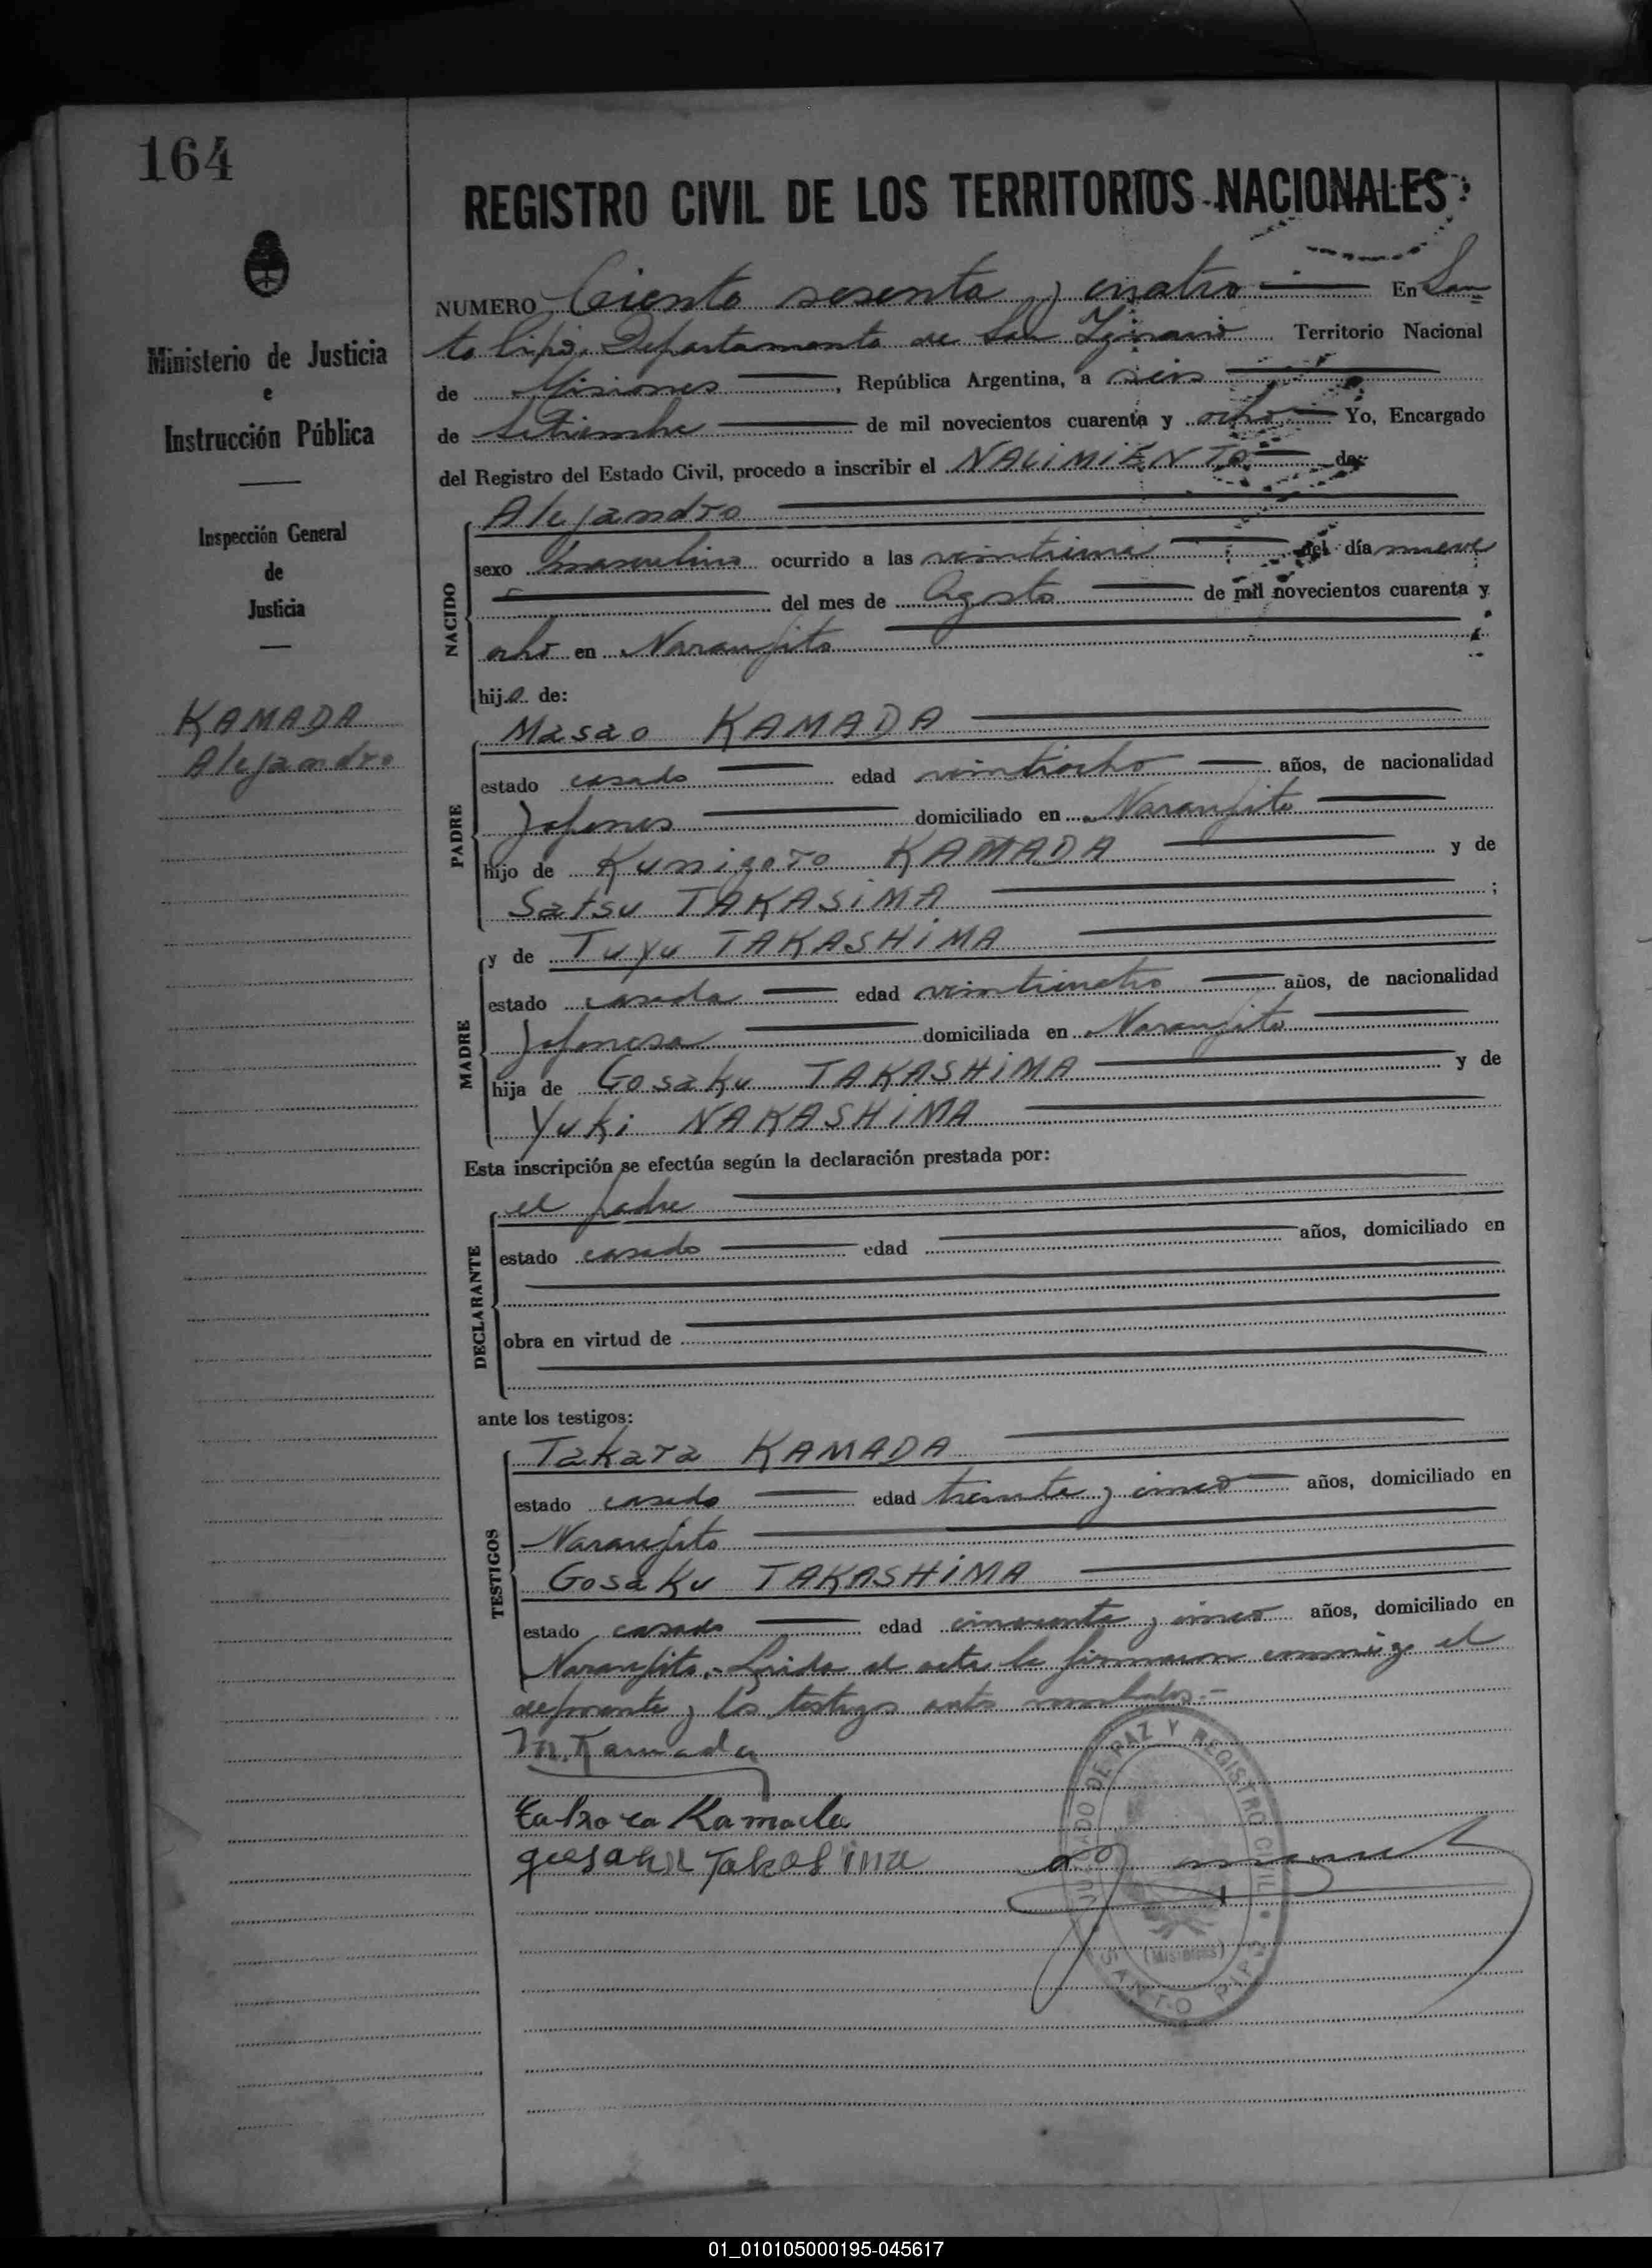 164
REGISTRO CIVIL DE LOS TERRITORIOS NACIONALES
Ministerio de Justicia
e
Instrucción Pública
Inspección General
de
Justicia
KAMADA
Alejandro
NUMERO Ciento sesenta y cuatro En San
to Pipó. Departamento de San Ignacio Territorio Nacional
de Misiones, República Argentina, a seis
de Setiembre de mil novecientos cuarenta y ocho Yo, Encargado
del Registro del Estado Civil, procedo a inscribir el NACIMIENTO de:
NACIDO
Alejandro
sexo masculino ocurrido a las veintiuna del día nueve
del mes de Agosto de mil novecientos cuarenta y
ocho en Naranjito
hijo de:
PADRE
Masao KAMADA
estado casado edad veintiocho años, de nacionalidad
Japones domiciliado en Naranjito
hijo de Kunigoro KAMADA y de
Satsu TAKASiMA ;
MADRE
y de Tuyu TAKASHiMA
estado casada edad veinticuatro años, de nacionalidad
Japonesa domiciliada en Naranjito
hija de Gosaku TAKASHiMA y de
Yuki NAKASHiMA
Esta inscripción se efectúa según la declaración prestada por:
DECLARANTE
el padre
estado casado edad años, domiciliado en
obra en virtud de
ante los testigos:
TESTIGOS
Takara KAMADA
estado casado edad treinta y cinco años, domiciliado en
Naranjito
Gosaku TAKASHiMA
estado casado edad cincuenta y cinco años, domiciliado en
Naranjito.- Leida el acta la firmaron conmigo el
deponente y los testigos ante nombrados.-
M. Kamada
Takara Kamada
gosaku Takasima
JUZGADO DE PAZ Y REGISTRO CIVIL
(MISIONES)
SANTO PIPO
01_010105000195-045617